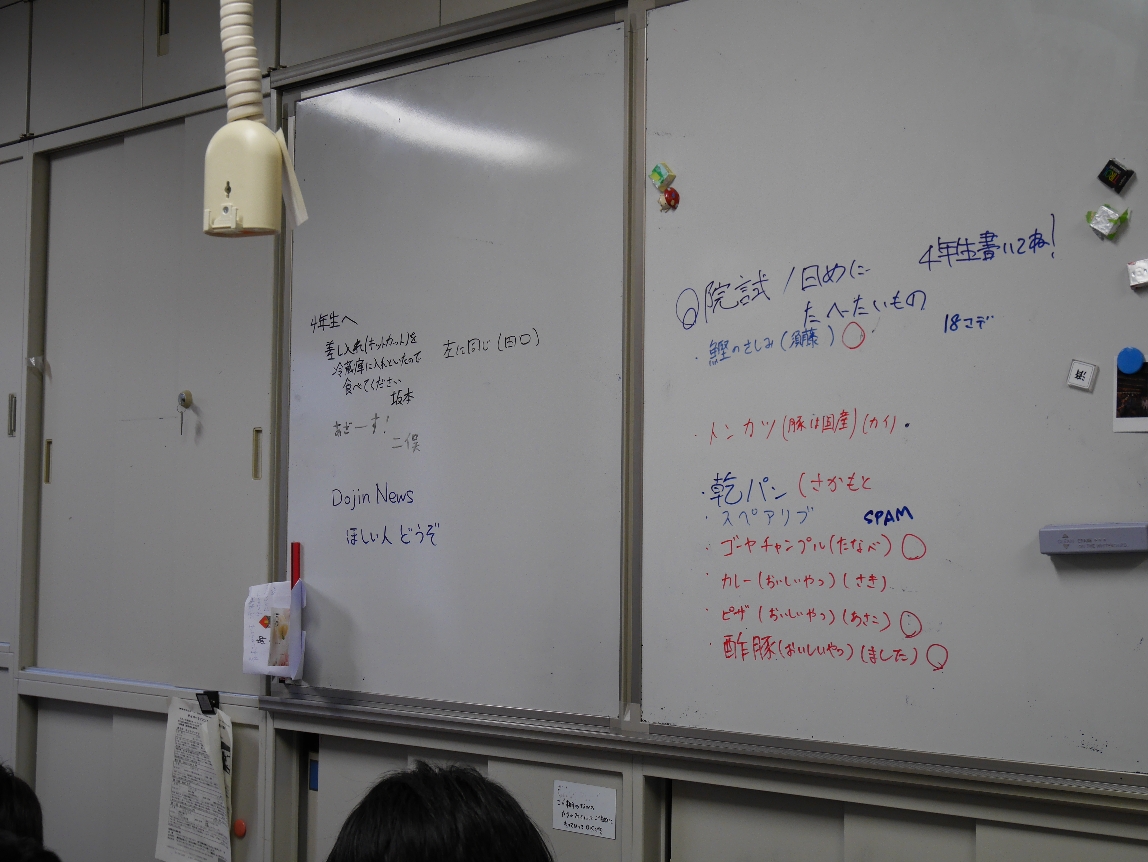 4年生へ
差し入れ(ホットカット)を
冷蔵庫に入れといたので
食べてください
坂本
左に同じ(田口)
あざーす!
二俣
Dojin News
ほしい人 どうぞ
4年生書いてね!
◎院試1日めに
たべたいもの
18コデ
・鰹のさしみ(須藤)○
・トンカツ(豚は国産)(カイ)・
・乾パン(さかもと
・スペアリブ SPAM
・ゴーヤチャンプル(たなべ)○
・カレー(おいしいやつ)(さき)
・ピザ(おいしいやつ)(あさこ)○
・酢豚(おいしいやつ)(ました)○